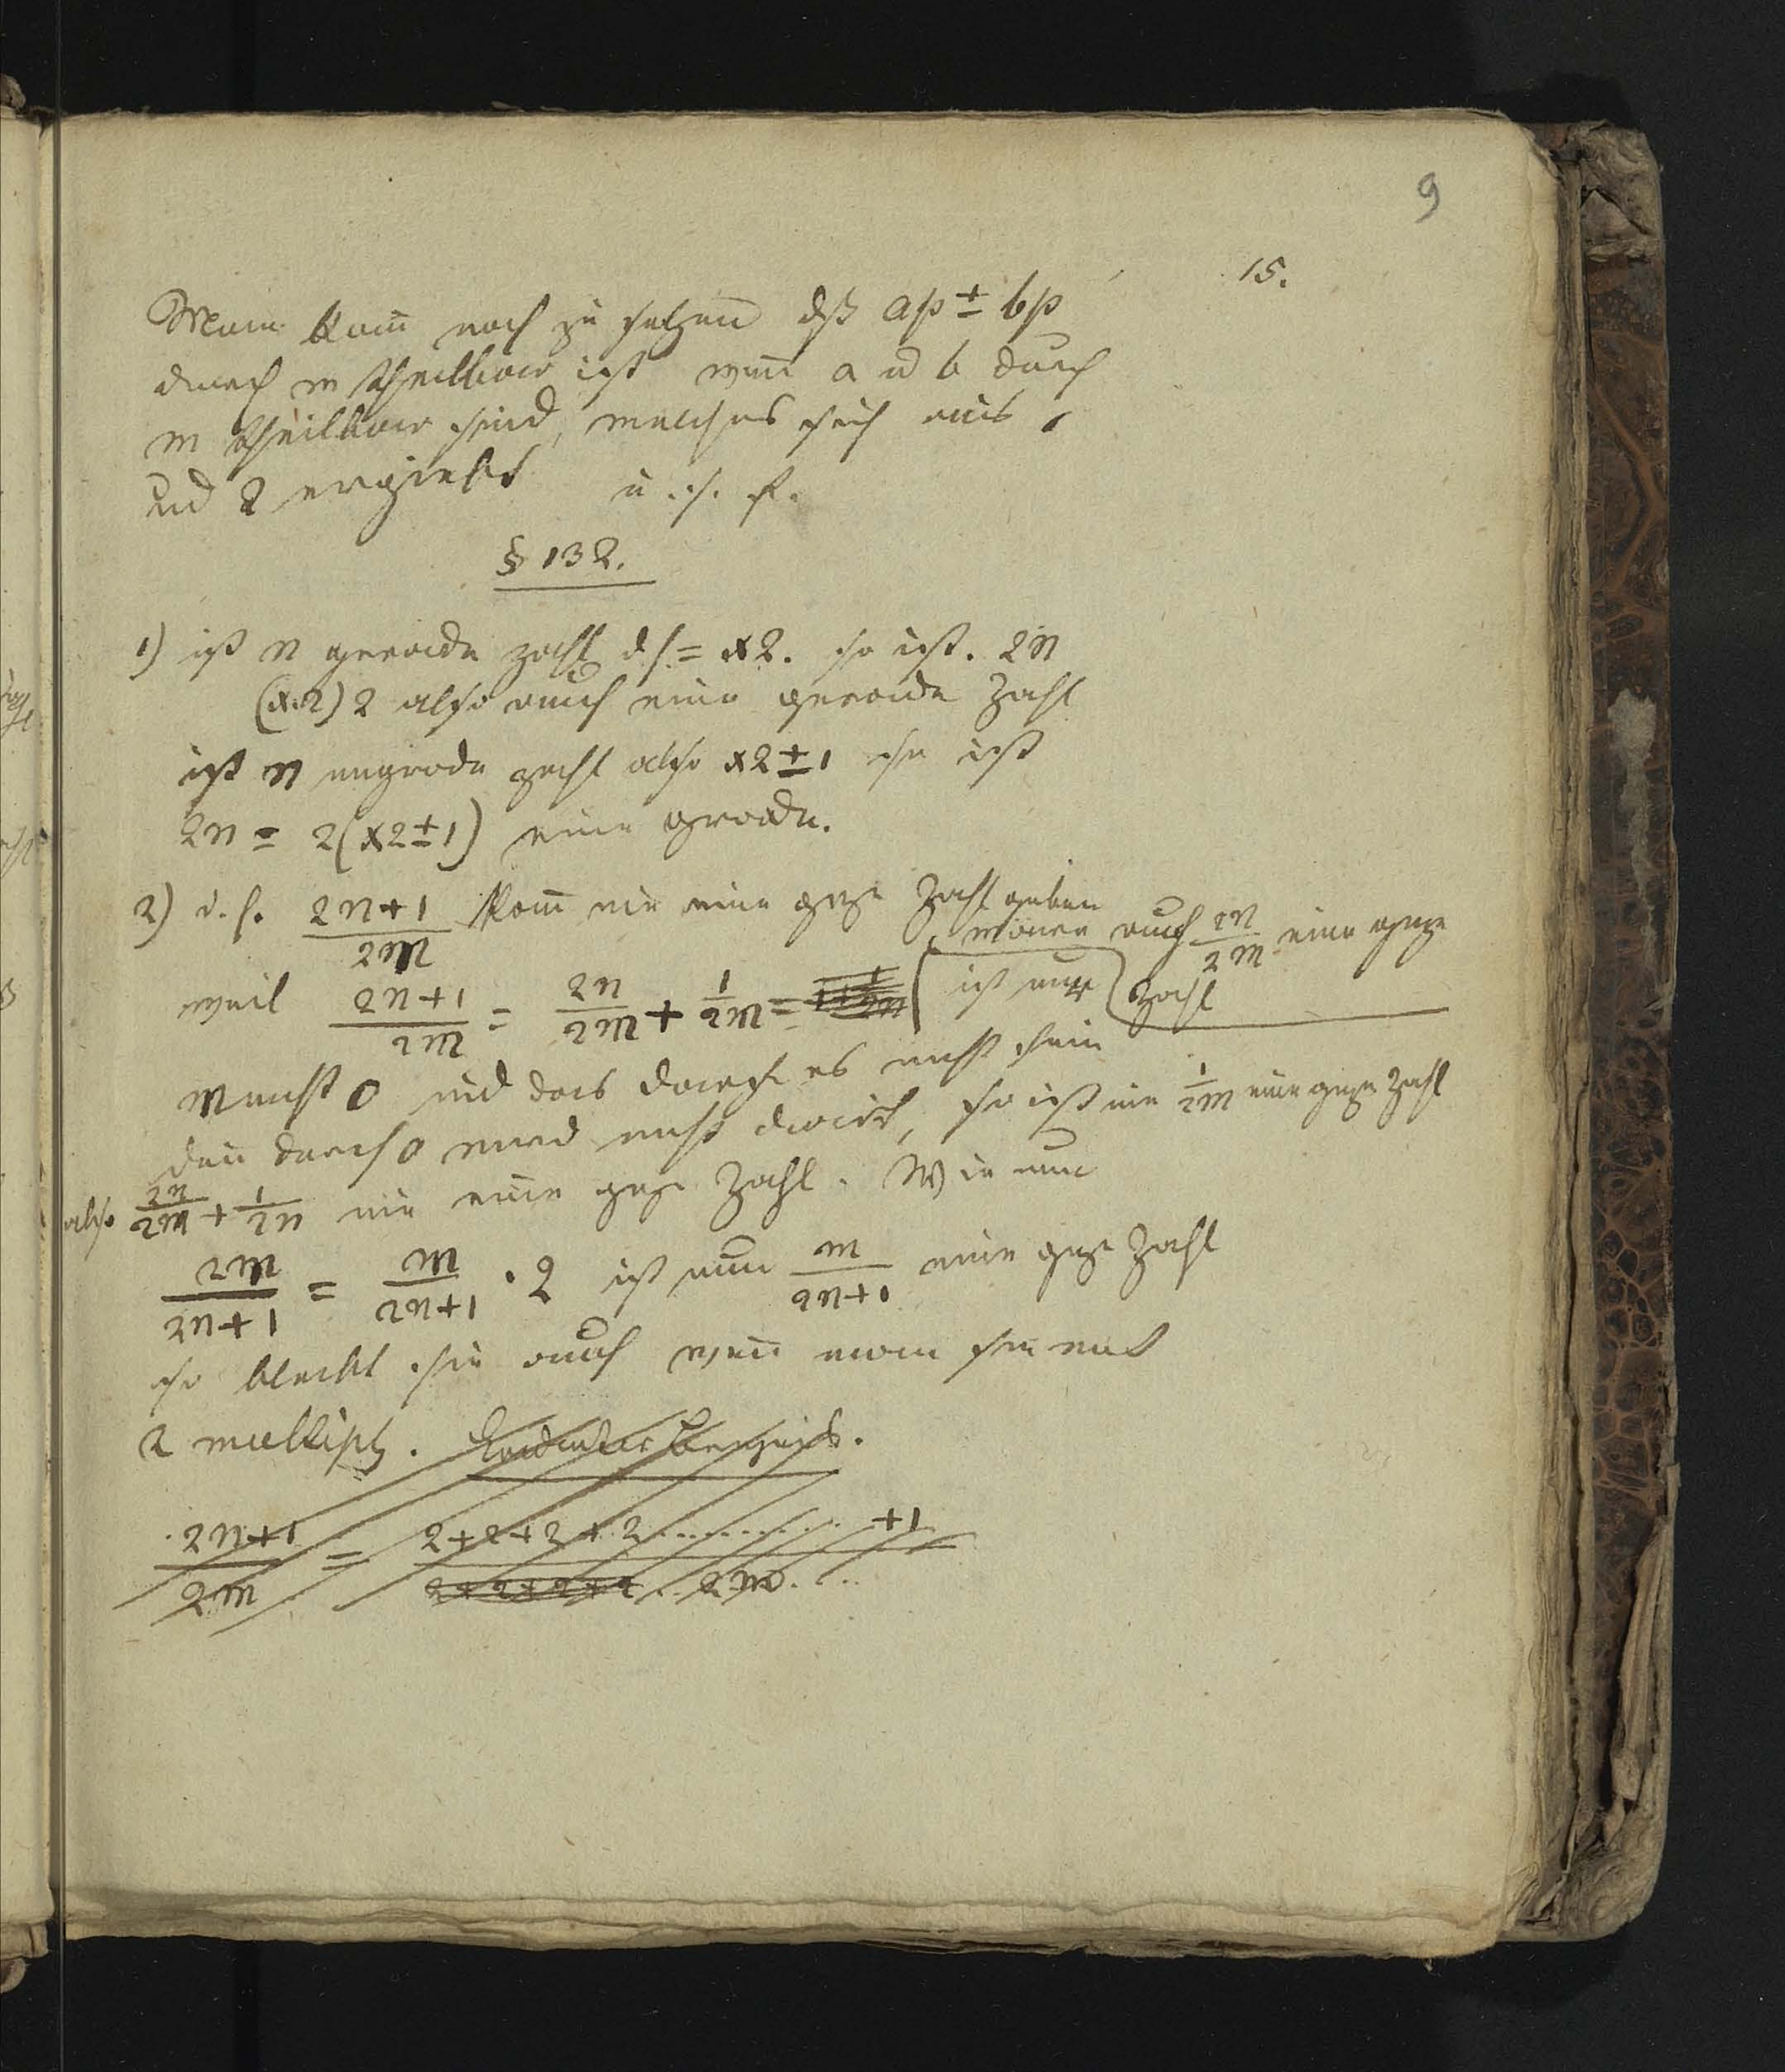 9
15.
Man kann noch zu setzen dß ap ± bp
durch m theilbar ist wenn a u b durch
m theilbar sind, welches sich aus 1
und 2 ergiebt u. s. f.
§ 132.
1) ist n gerade zahl ds = x2. so ist. 2n
(x.2) 2 also auch eine gerade Zahl
ist n ungrade zahl also x2 ± 1 so ist
2n = 2(x2 ± 1) eine grade.
2) d. h. 2n+1/2m kann nie eine gze Zahl geben
wäre auch 2n/2m eine gze
weil 2n+1/2m = 2n/2m + 1/2m = ist nur Zahl
m nicht 0 und das darf es nicht sein
denn durch 0 wird nicht divid, so ist nie 1/2m eine gze Zahl
also 2n/2m + 1/2n nie eine gze Zahl. Wie nun
2m/2n+1 = m/2n+1 · 2 ist nun m/2n+1 eine gze Zahl
so bleibt sie auch wenn man sie mit
2 multipz.
2n+1/2m = 2+2+2+2 .......... +1/2+2+2+2 .. 2m. ...